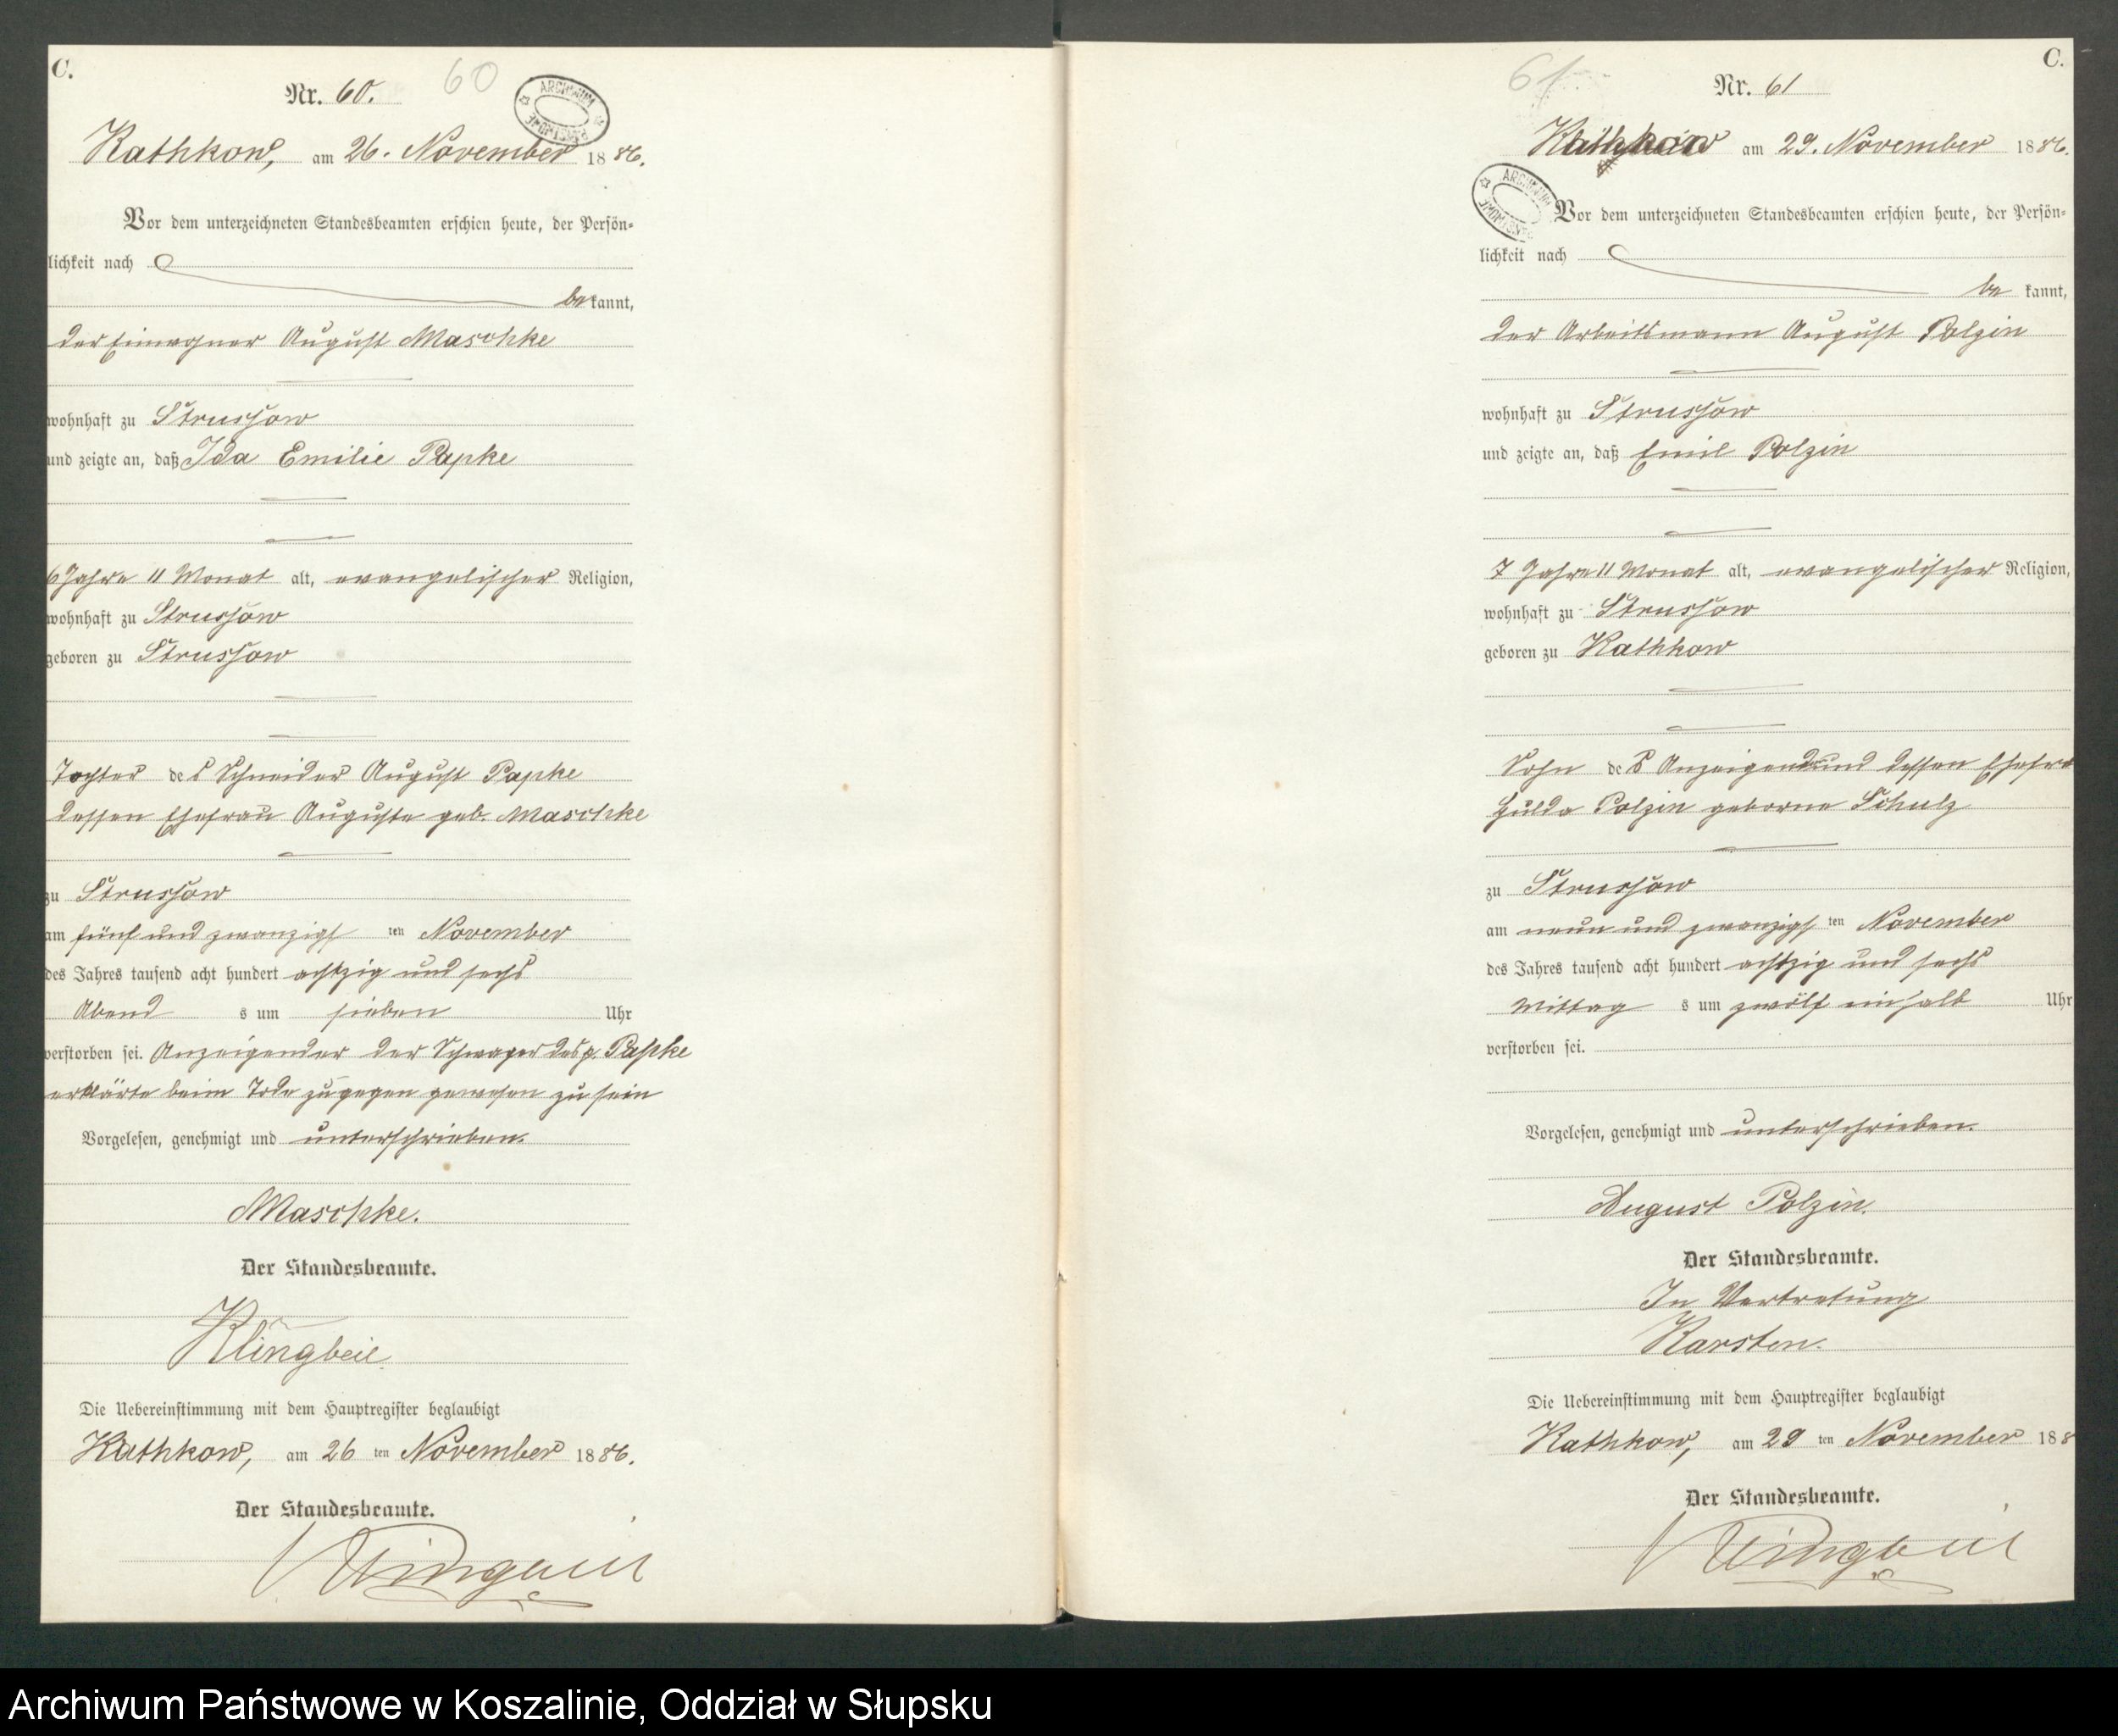 C.
Nr. 60. 60
ARCHIWUM PAŃSTWOWE
Kathkow, am 26. November 1886.
Vor dem unterzeichneten Standesbeamten erschien heute, der Persön-
lichkeit nach
bekannt,
der Einwohner August Maschke
wohnhaft zu Strussow
und zeigte an, daß Ida Emilie Papke
6 Jahre 11 Monat alt, evangelischer Religion,
wohnhaft zu Strussow
geboren zu Strussow
Tochter des Schneider August Papke
dessen Ehefrau Auguste geb. Maschke
zu Strussow
am fünf und zwanzigsten November
des Jahres tausend acht hundert achtzig und sechs
Abends um sieben Uhr
verstorben sei. Anzeigender der Schwager des p. Papke
erklärte beim Tode zugegen gewesen zu sein
Vorgelesen, genehmigt und unterschrieben.
Maschke.
Der Standesbeamte.
Klingbeil
Die Uebereinstimmung mit dem Hauptregister beglaubigt
Kathkow, am 26ten November 1886.
Der Standesbeamte.
Klingbeil
C.
61 Nr. 61
Kathkow am 29. November 1886.
ARCHIWUM PAŃSTWOWE
Vor dem unterzeichneten Standesbeamten erschien heute, der Persön-
lichkeit nach
bekannt,
der Arbeitsmann August Polzin
wohnhaft zu Strussow
und zeigte an, daß Emil Polzin
7 Jahre 11 Monat alt, evangelischer Religion,
wohnhaft zu Strussow
geboren zu Kathkow
Sohn des Anzeigenden und dessen Ehefra
Hulda Polzin geborne Schulz
zu Strussow
am neun und zwanzigsten November
des Jahres tausend acht hundert achtzig und sechs
Mittags um zwölf einhalb Uhr
verstorben sei.
Vorgelesen, genehmigt und unterschrieben.
August Polzin.
Der Standesbeamte.
In Vertretung
Karsten.
Die Uebereinstimmung mit dem Hauptregister beglaubigt
Kathkow, am 29ten November 188
Der Standesbeamte.
Klingbeil
Archiwum Państwowe w Koszalinie, Oddział w Słupsku